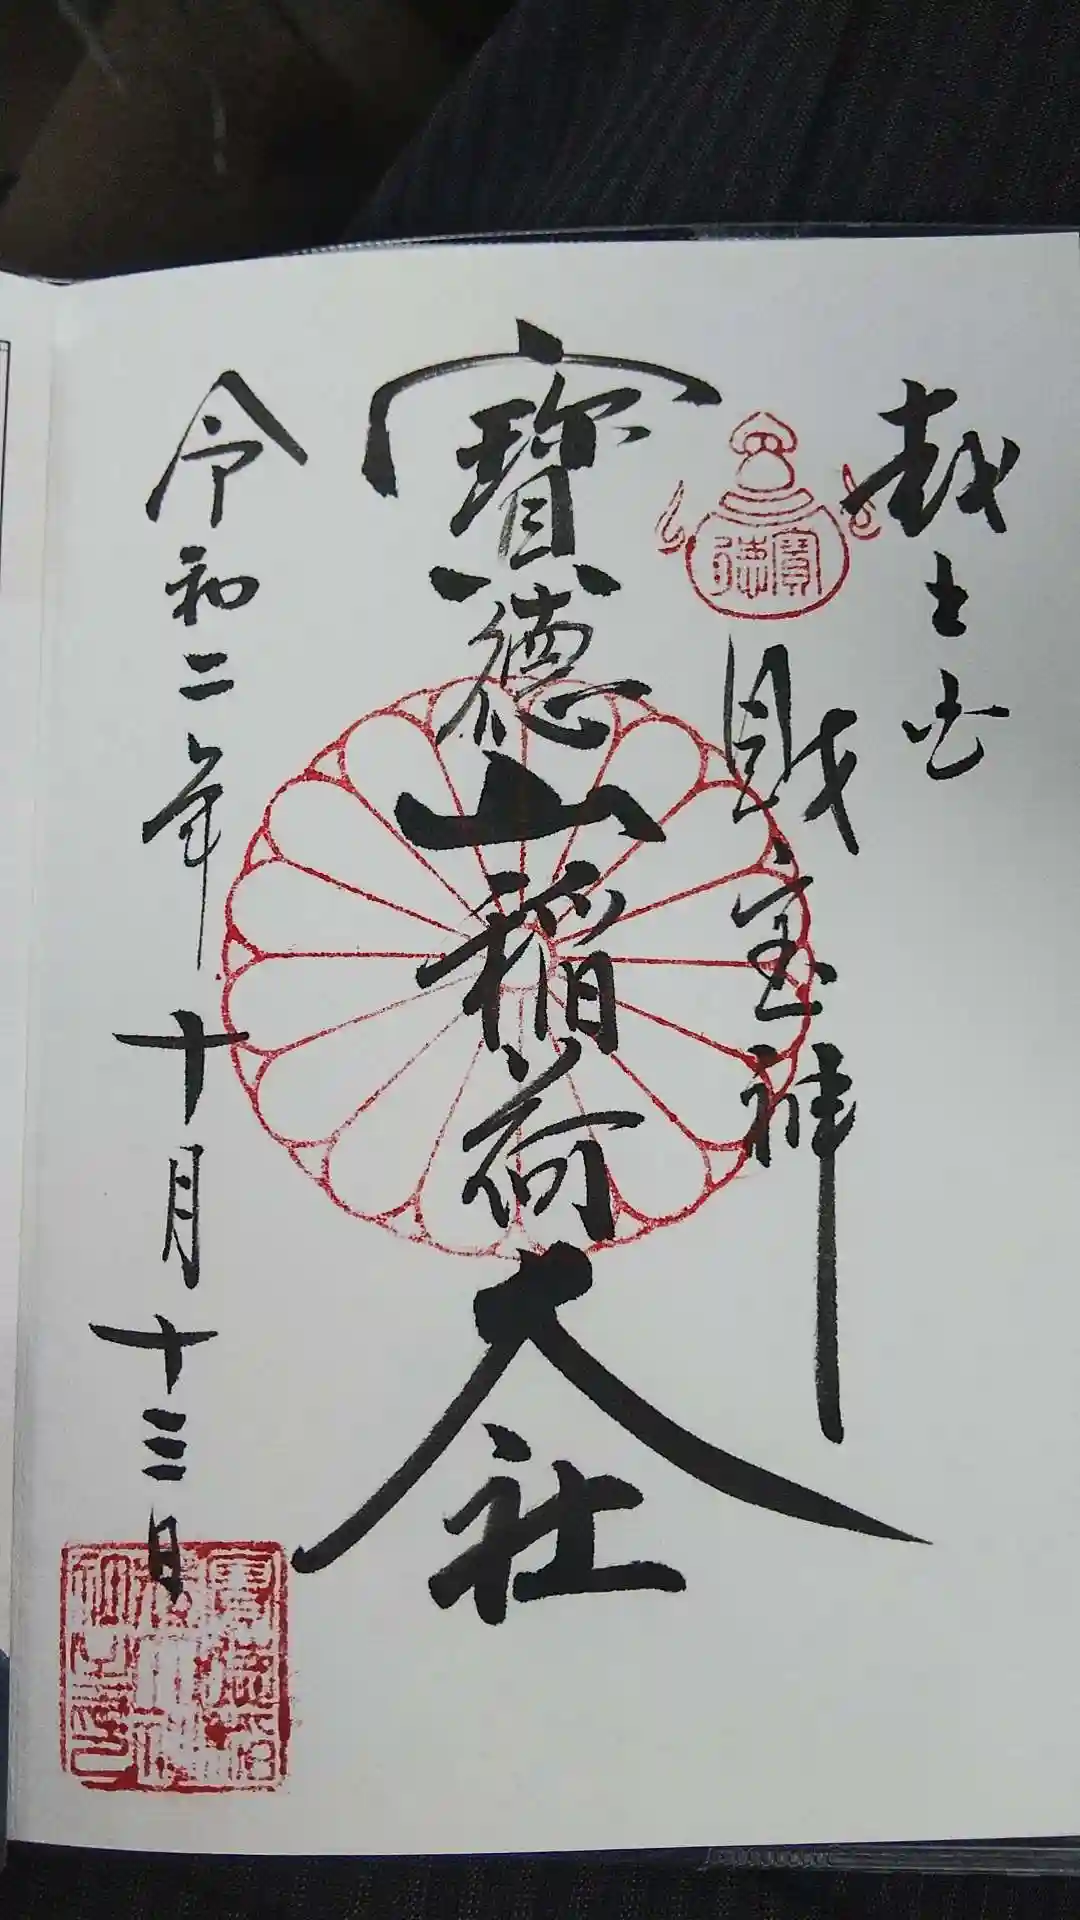 越土
寶徳
財宝神
寶徳山稲荷大社
令和二年 十月十三日